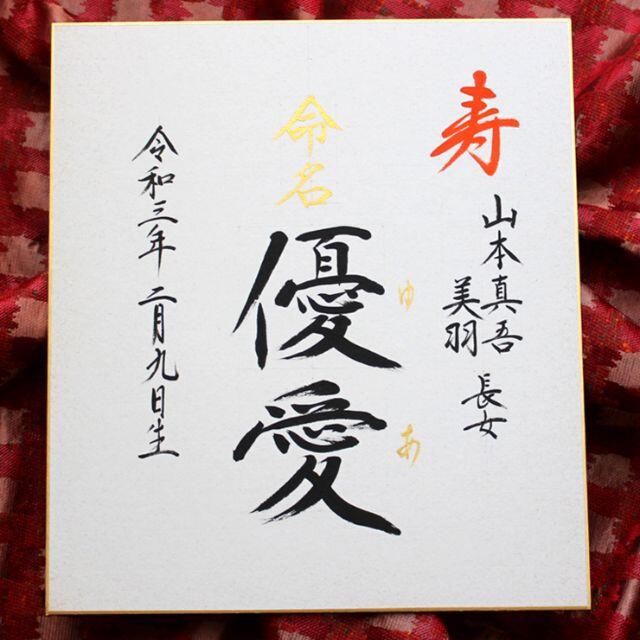 寿
山本真吾
美羽
長女
命名
優愛
ゆあ
令和三年 二月九日生